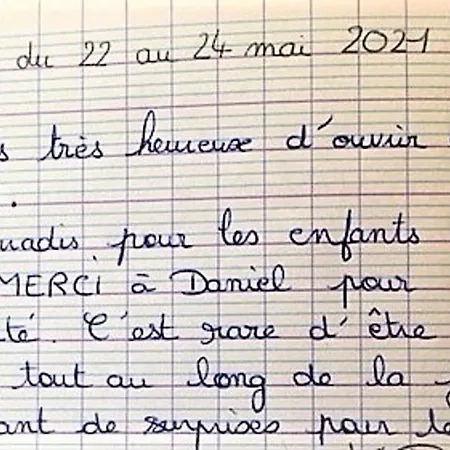 du 22 au 24 mai 2021
s très heureux d'ouvrir
uadis pour les enfants
MERCi à Daniel pour
té. C'est rare d'être
tout au long de la
ant de surprises pour le